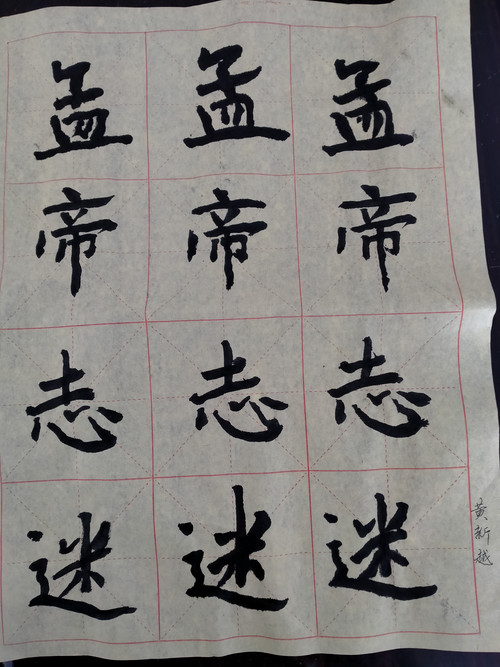 孟孟孟
帝帝帝
志志志
迷迷迷
黄新越